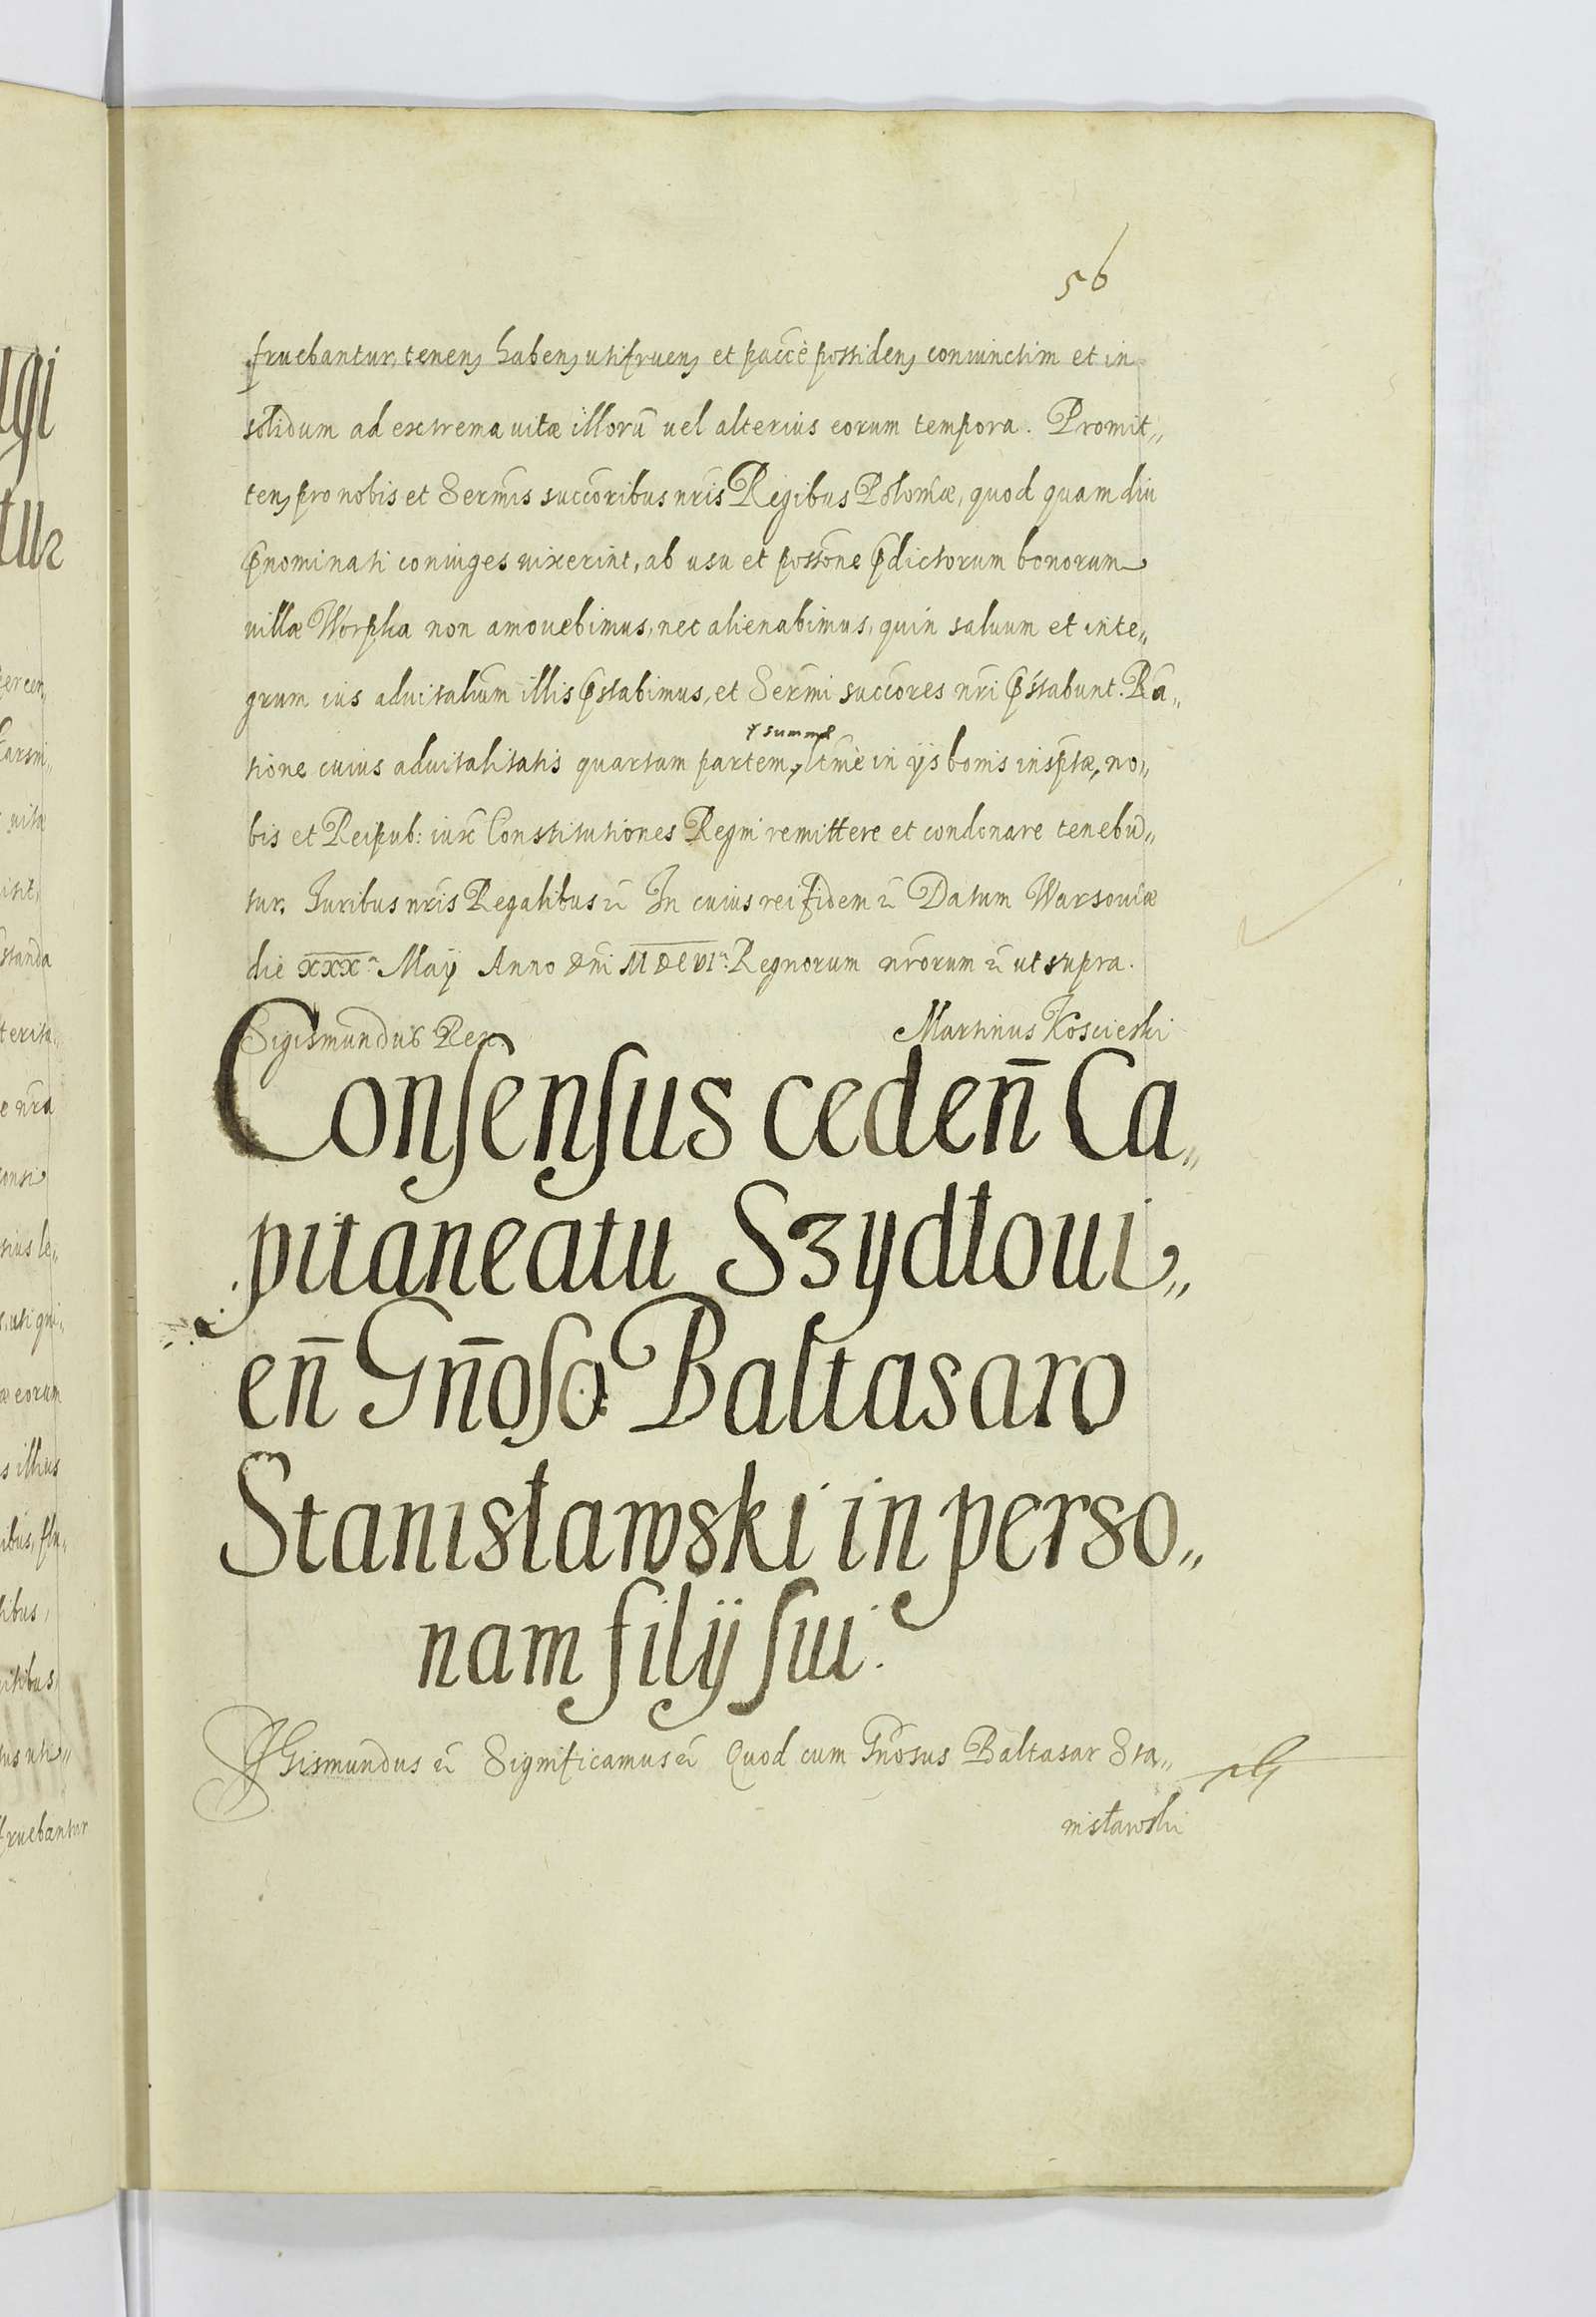 56
fruebantur, tenen haben utifruen et pacce possiden coniunctim et in
solidum ad extrema uitæ illorū uel alterius eorum tempora. Promit„
ten pro nobis et Sermis succoribus nris Regibus Poloniæ, quod quam diu
pnominati coniuges uixerint, ab usu et possone pdictorum bonorum
uillæ Worpka non amouebimus, nec alienabimus, quin saluum et inte„
grum ius aduitalium illis pstabimus, et Sermi succores nri pstabunt. Ra„
summæ
tione cuius aduitalitatis quartam partem, ltme in ijs bonis insptæ, no„
bis et Reipub: iux Constitutiones Regni remittere et condonare tenebū„
tur. Iuribus nris Regalibus &c In cuius rei fidem &c Datum Warsouiæ
die XXXa Maij Anno Dni MDCVIo. Regnorum nrorum &c ut supra.
Sigismundus Rex. Martinus Koscieski
Consensus ceden̄ Ca„
pitaneatu Szydłoui„
en̄ Gn̄oso Baltasaro
Stanisławski in perso„
nam filij sui.
SIGismundus &c Significamus &c Quod cum Gnosus Baltasar Sta„
nisławski
fruebantur